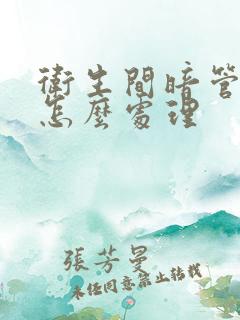 衛生間暗管
怎麼處理
張芳曼
未经同意禁止转载